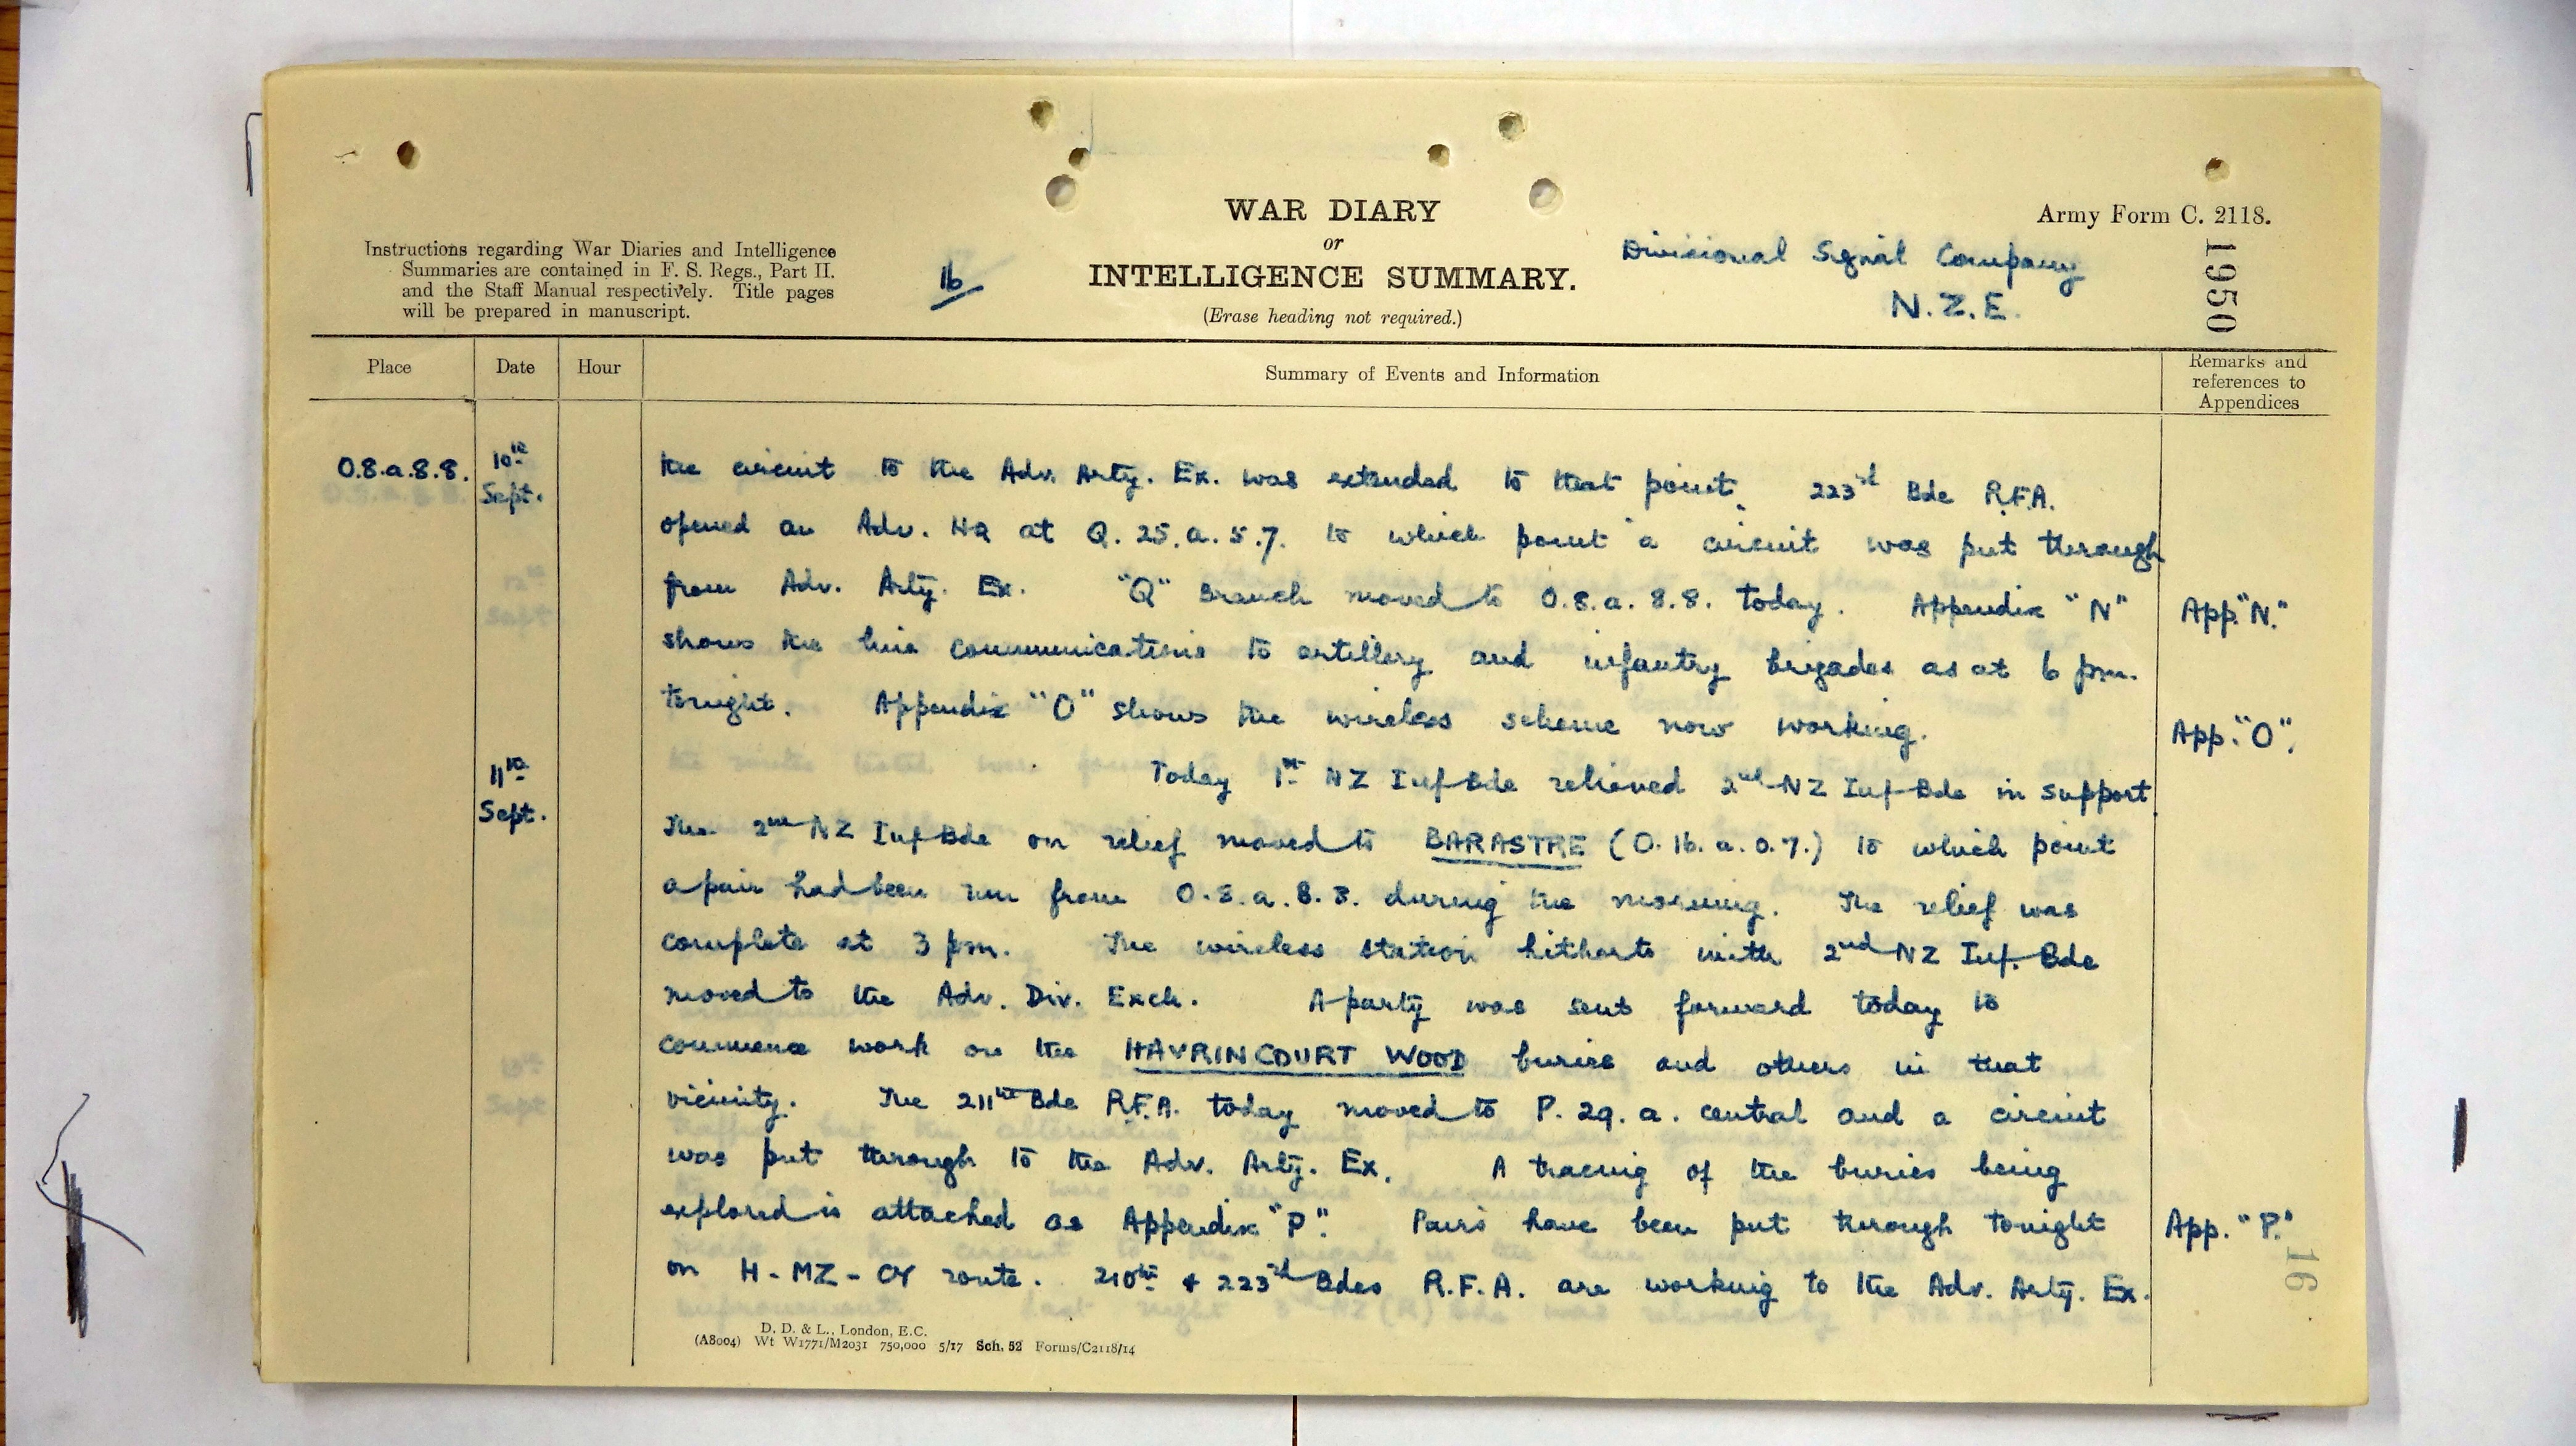 WAR DIARY
or
INTELLIGENCE SUMMARY.
(Erase heading not required.)
Army Form C. 2118.
Instructions regarding War Diaries and Intelligence
Summaries are contained in F. S. Regs., Part II.
and the Staff Manual respectively. Title pages
will be prepared in manuscript.
16
Divisional Signal Company
N.Z.E.
1950
Place
Date
Hour
Summary of Events and Information
Remarks and
references to
Appendices
O.8.a.8.8. 10th Sept. the circuit to the Adv. Arty. Ex. was extended to that point. 223rd Bde R.F.A.
opened an Adv. HQ at Q.25.a.5.7. to which point a circuit was put through
from Adv. Arty. Ex. "Q" Branch moved to O.8.a.8.8. today. Appendix "N" App. "N."
shows the line communications to artillery and infantry brigades as at 6 pm.
tonight. Appendix "O" shows the wireless scheme now working. App. "O".
11th Sept. Today 1st NZ Inf Bde relieved 2nd NZ Inf Bde in support
The 2nd NZ Inf Bde on relief moved to BARASTRE (O.16.a.0.7.) to which point
a pair had been run from O.8.a.8.8. during the morning. The relief was
complete at 3 pm. The wireless station hitherto with 2nd NZ Inf. Bde
moved to the Adv. Div. Exch. A party was sent forward today to
commence work on the HAVRINCOURT WOOD buries and others in that
vicinity. The 211th Bde R.F.A. today moved to P.29.a. central and a circuit
was put through to the Adv. Arty. Ex. A tracing of the buries being
explored is attached as Appendix "P." Pairs have been put through tonight App. "P."
on H-MZ-CY route. 210th & 223rd Bdes R.F.A. are working to the Adv. Arty. Ex.
16
D. D. & L., London, E.C.
(A8004) Wt W1771/M2031 750,000 5/17 Sch. 52 Forms/C2118/14